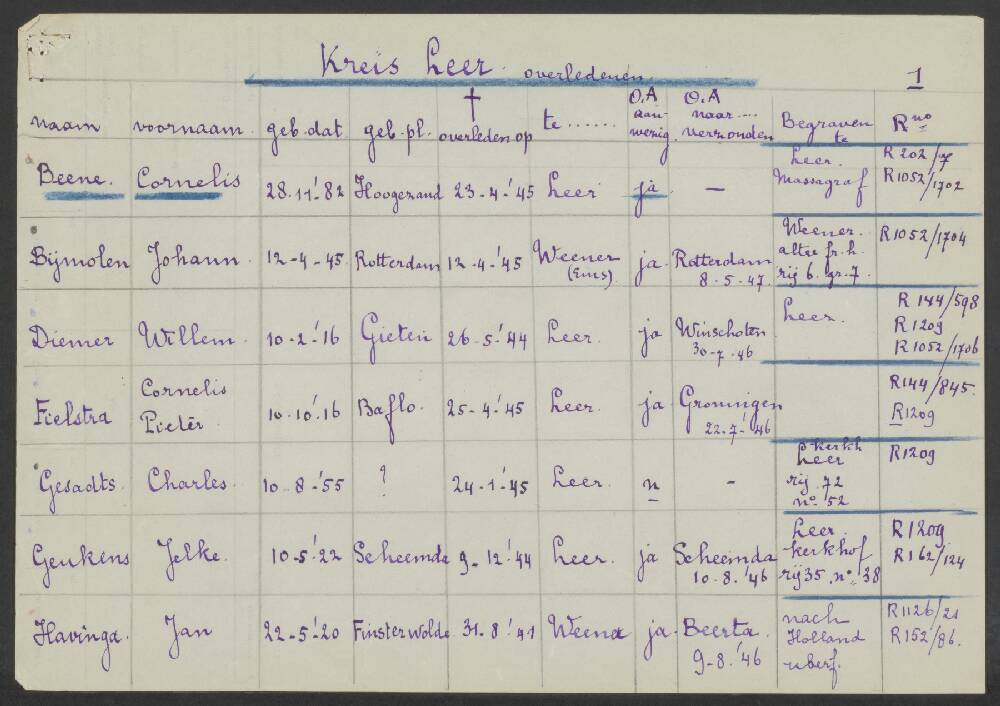 Kreis Leer. overledenen.
1
naam voornaam. geb. dat. geb. pl. † overleden op te ...... O.A aan- wezig. O.A naar .... verzonden Begraven te Rno
Beene. Cornelis 28.11.'82 Hoogezand 23-4-'45 Leer ja — Leer. Massagraf R 202/7 R1052/1702
Bijmolen Johann. 12-4-45. Rotterdam 12-4-'45 Weener (Ems). ja. Rotterdam 8-5-47. Weener. alter fr. h. rij 6. gr. 7. R1052/1704
Diemer Willem. 10-2-'16 Gieten 26-5-'44 Leer. ja Winschoten 30-7-46 Leer. R 144/598 R 1209 R 1052/1706
Fielstra Cornelis Pieter. 10-10'.16 Baflo. 25-4-'45 Leer. ja Groningen 22.7-'46 R144/845. R1209
Gesadts. Charles. 10-8-'55 ? 24-1-'45 Leer. n - kerkh Leer rij. 72 no. 52 R1209
Geukens Jelke. 10-5-'22 Scheemda 9-12-'44 Leer. ja Scheemda 10.8.'46 Leer. kerkhof rij 35. no. 38 R1209 R162/124
Havinga. Jan 22-5-'20 Finsterwolde. 31-8-'41 Weener ja. Beerta. 9-8.'46 nach Holland uberf. R1126/21 R152/86.